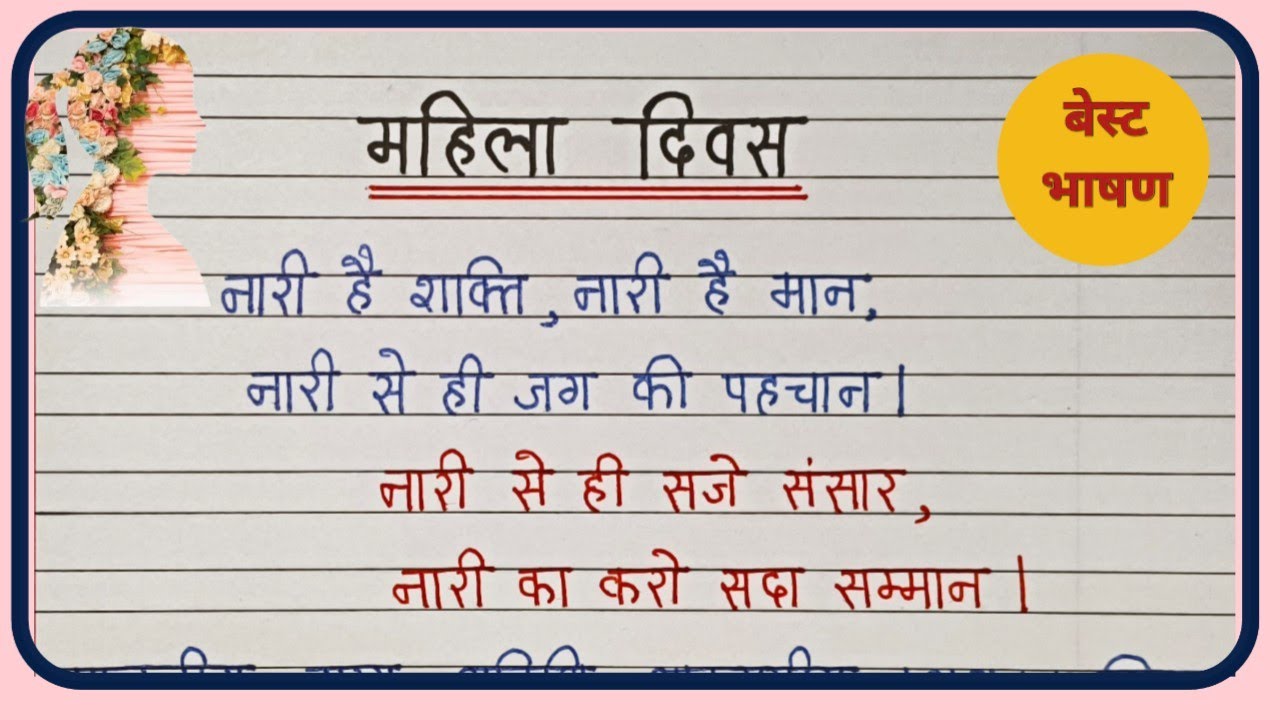 महिला दिवस
बेस्ट
भाषण
नारी है शक्ति, नारी है मान,
नारी से ही जग की पहचान।
नारी से ही सजे संसार,
नारी का करो सदा सम्मान।